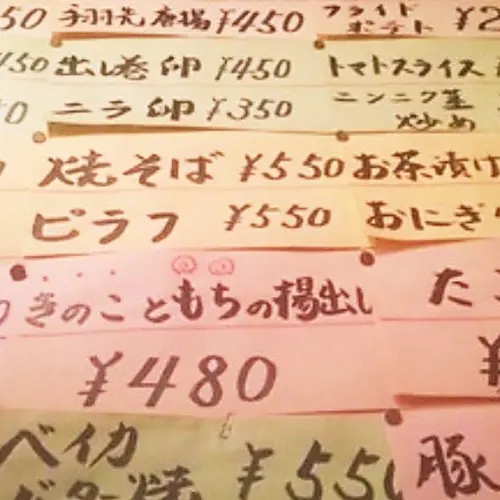 50 手羽先唐揚 ¥450 フライドポテト ¥2
450 出し巻卵 ¥450 トマトスライス
0 ニラ卵 ¥350 ニンニク茎炒め
焼そば ¥550 お茶漬け
ピラフ ¥550 おにぎ
きのこともちの揚出し た
¥480 ¥
ベイカ
バター焼 ¥550 豚